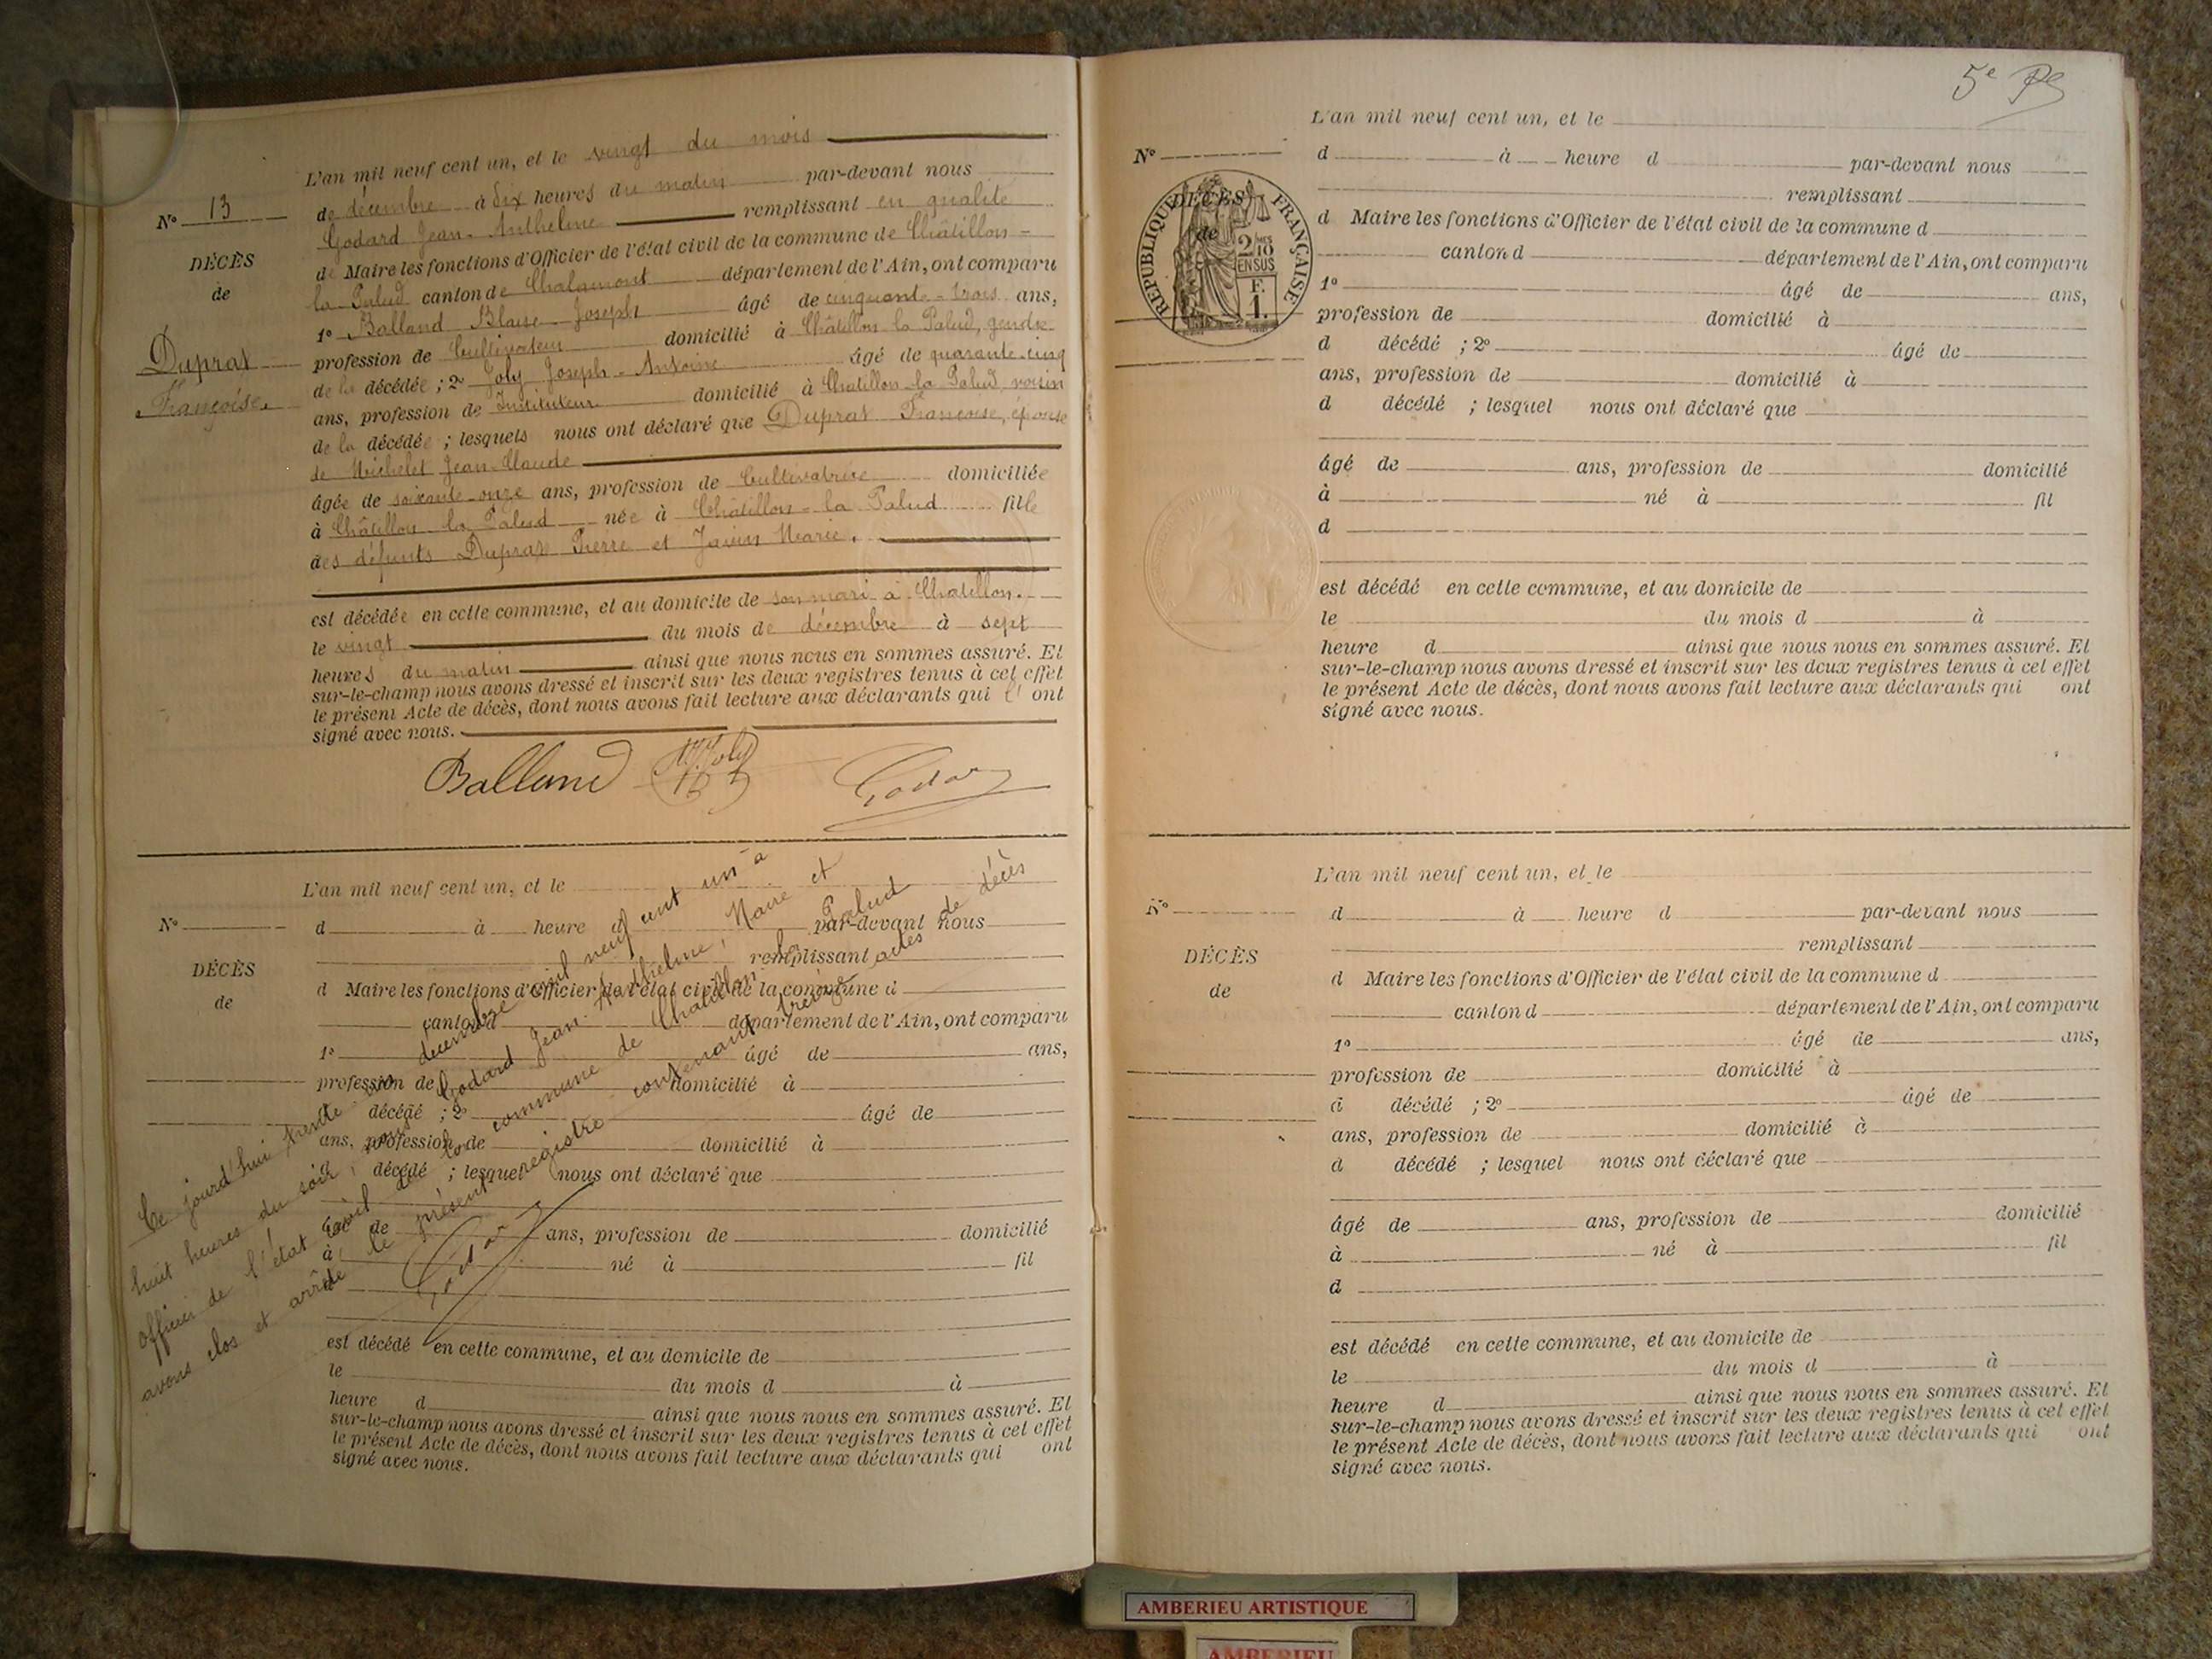 L'an mil neuf cent un, et le vingt du mois
N° 13
de décembre à dix heures du matin par-devant nous
Godard Jean-Anthelme remplissant en qualité
DÉCÈS
de
de Maire les fonctions d'Officier de l'état civil de la commune de Châtillon-
la Palud canton de Chalamont département de l'Ain, ont comparu
1° Balland Blaise Joseph âgé de cinquante-trois ans,
Duprat
Françoise
profession de Cultivateur domicilié à Châtillon la Palud, gendre
de la décédée ; 2° Joly Joseph-Antoine âgé de quarante-cinq
ans, profession de Instituteur domicilié à Châtillon la Palud, voisin
de la décédée ; lesquels nous ont déclaré que Duprat Françoise, épouse
de Michelet Jean-Claude
âgée de soixante-onze ans, profession de Cultivatrice domiciliée
à Châtillon la Palud née à Châtillon-la Palud fille
des défunts Duprat Pierre et Marie.
est décédée en cette commune, et au domicile de son mari à Châtillon.
le vingt du mois de décembre à sept
heures du matin ainsi que nous nous en sommes assuré. Et
sur-le-champ nous avons dressé et inscrit sur les deux registres tenus à cet effet
le présent Acte de décès, dont nous avons fait lecture aux déclarants qui l'ont
signé avec nous.
Balland Joly Godard
L'an mil neuf cent un, et le
N° d à heure d par-devant nous
remplissant
DÉCÈS
de
d Maire les fonctions d'Officier de l'état civil de la commune d
canton d département de l'Ain, ont comparu
1° âgé de ans,
profession de domicilié à
d décédé ; 2° âgé de
ans, profession de domicilié à
d décédé ; lesquel nous ont déclaré que
âgé de ans, profession de domicilié
à né à fil
d
est décédé en cette commune, et au domicile de
le du mois d à
heure d ainsi que nous nous en sommes assuré. Et
sur-le-champ nous avons dressé et inscrit sur les deux registres tenus à cet effet
le présent Acte de décès, dont nous avons fait lecture aux déclarants qui ont
signé avec nous.
Ce jourd'hui trente-un décembre mil neuf cent un à
huit heures du soir, nous Godard Jean-Anthelme, Maire et
officier de l'état civil de la commune de Châtillon la Palud
avons clos et arrêté le présent registre contenant treize actes de décès
Godard
5e
L'an mil neuf cent un, et le
N° d à heure d par-devant nous
remplissant
DÉCÈS
de
RÉPUBLIQUE FRANÇAISE
2/10 MES
EN SUS
F.
1.
d Maire les fonctions d'Officier de l'état civil de la commune d
canton d département de l'Ain, ont comparu
1° âgé de ans,
profession de domicilié à
d décédé ; 2° âgé de
ans, profession de domicilié à
d décédé ; lesquel nous ont déclaré que
âgé de ans, profession de domicilié
à né à fil
d
est décédé en cette commune, et au domicile de
le du mois d à
heure d ainsi que nous nous en sommes assuré. Et
sur-le-champ nous avons dressé et inscrit sur les deux registres tenus à cet effet
le présent Acte de décès, dont nous avons fait lecture aux déclarants qui ont
signé avec nous.
L'an mil neuf cent un, et le
N° d à heure d par-devant nous
remplissant
DÉCÈS
de
d Maire les fonctions d'Officier de l'état civil de la commune d
canton d département de l'Ain, ont comparu
1° âgé de ans,
profession de domicilié à
d décédé ; 2° âgé de
ans, profession de domicilié à
d décédé ; lesquel nous ont déclaré que
âgé de ans, profession de domicilié
à né à fil
d
est décédé en cette commune, et au domicile de
le du mois d à
heure d ainsi que nous nous en sommes assuré. Et
sur-le-champ nous avons dressé et inscrit sur les deux registres tenus à cet effet
le présent Acte de décès, dont nous avons fait lecture aux déclarants qui ont
signé avec nous.
AMBERIEU ARTISTIQUE
AMBERIEU